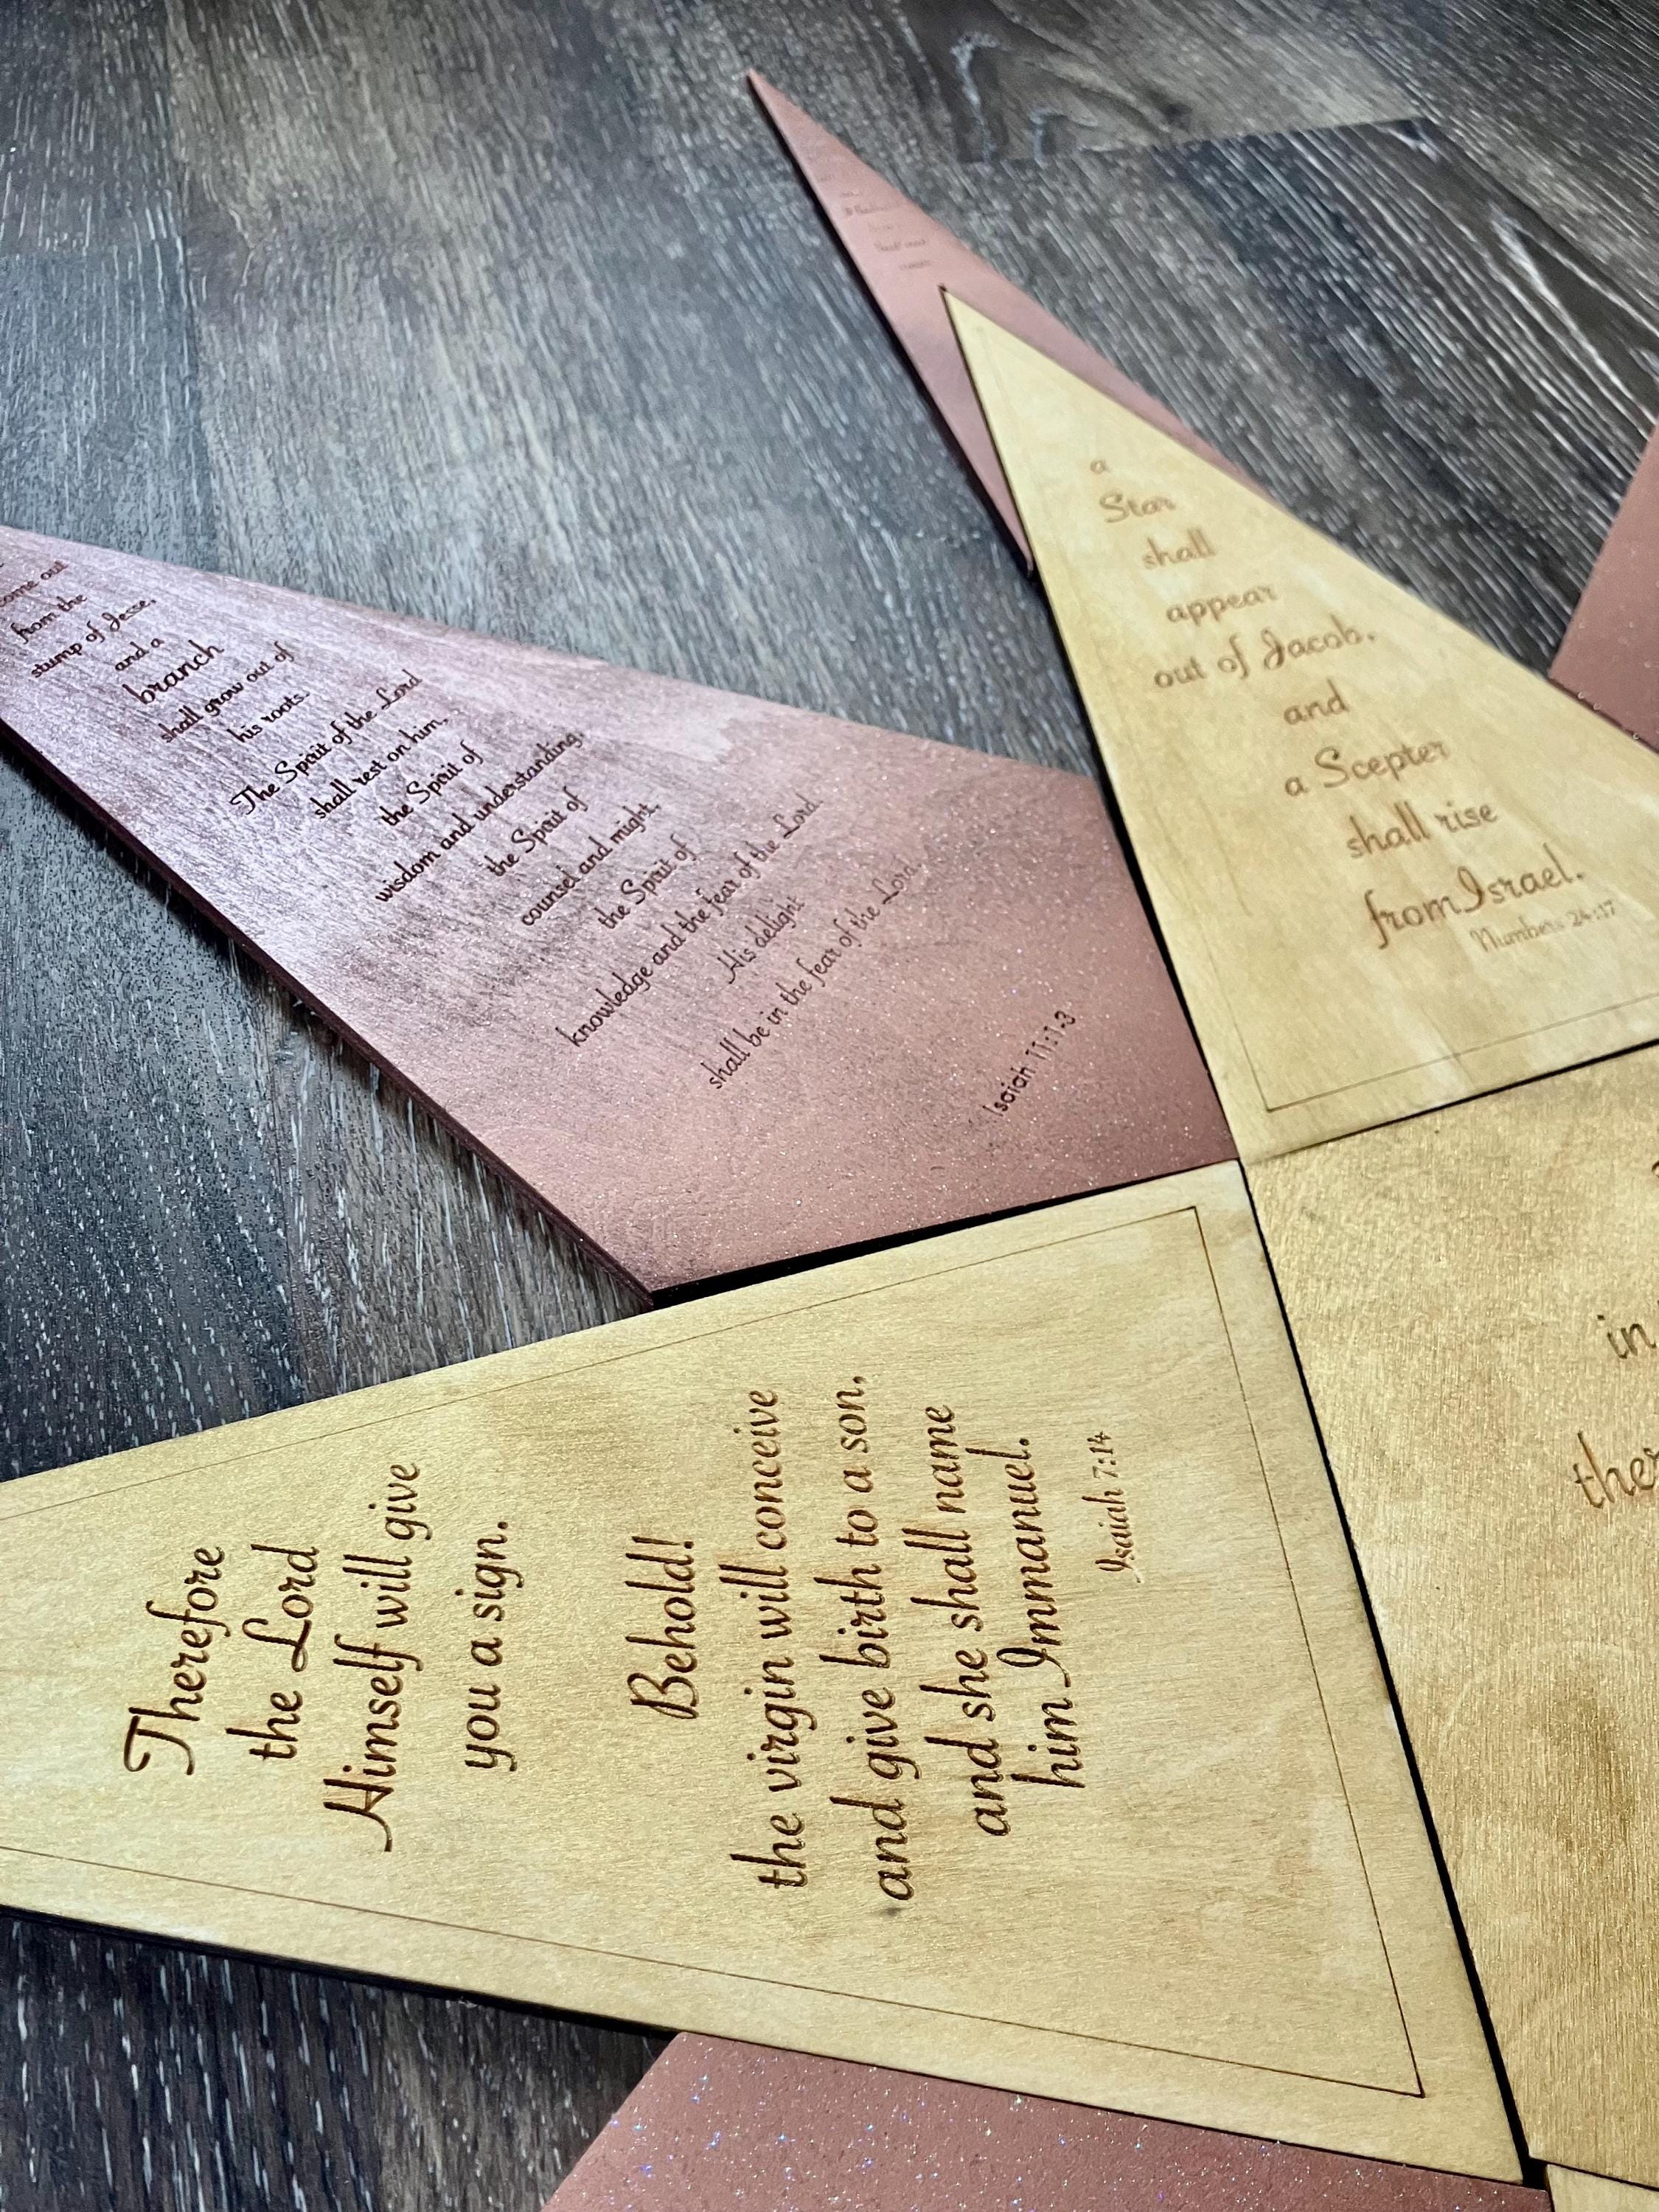 a
Star
shall
appear
out of Jacob,
and
a Scepter
shall rise
from Israel.
Numbers 24:17
come out
from the
stump of Jesse,
and a
branch
shall grow out of
his roots.
The Spirit of the Lord
shall rest on him,
the Spirit of
wisdom and understanding,
the Spirit of
counsel and might,
the Spirit of
knowledge and the fear of the Lord.
His delight
shall be in the fear of the Lord.
Isaiah 11:1-3
Therefore
the Lord
Himself will give
you a sign.
Behold!
the virgin will conceive
and give birth to a son,
and she shall name
him Immanuel.
Isaiah 7:14
in